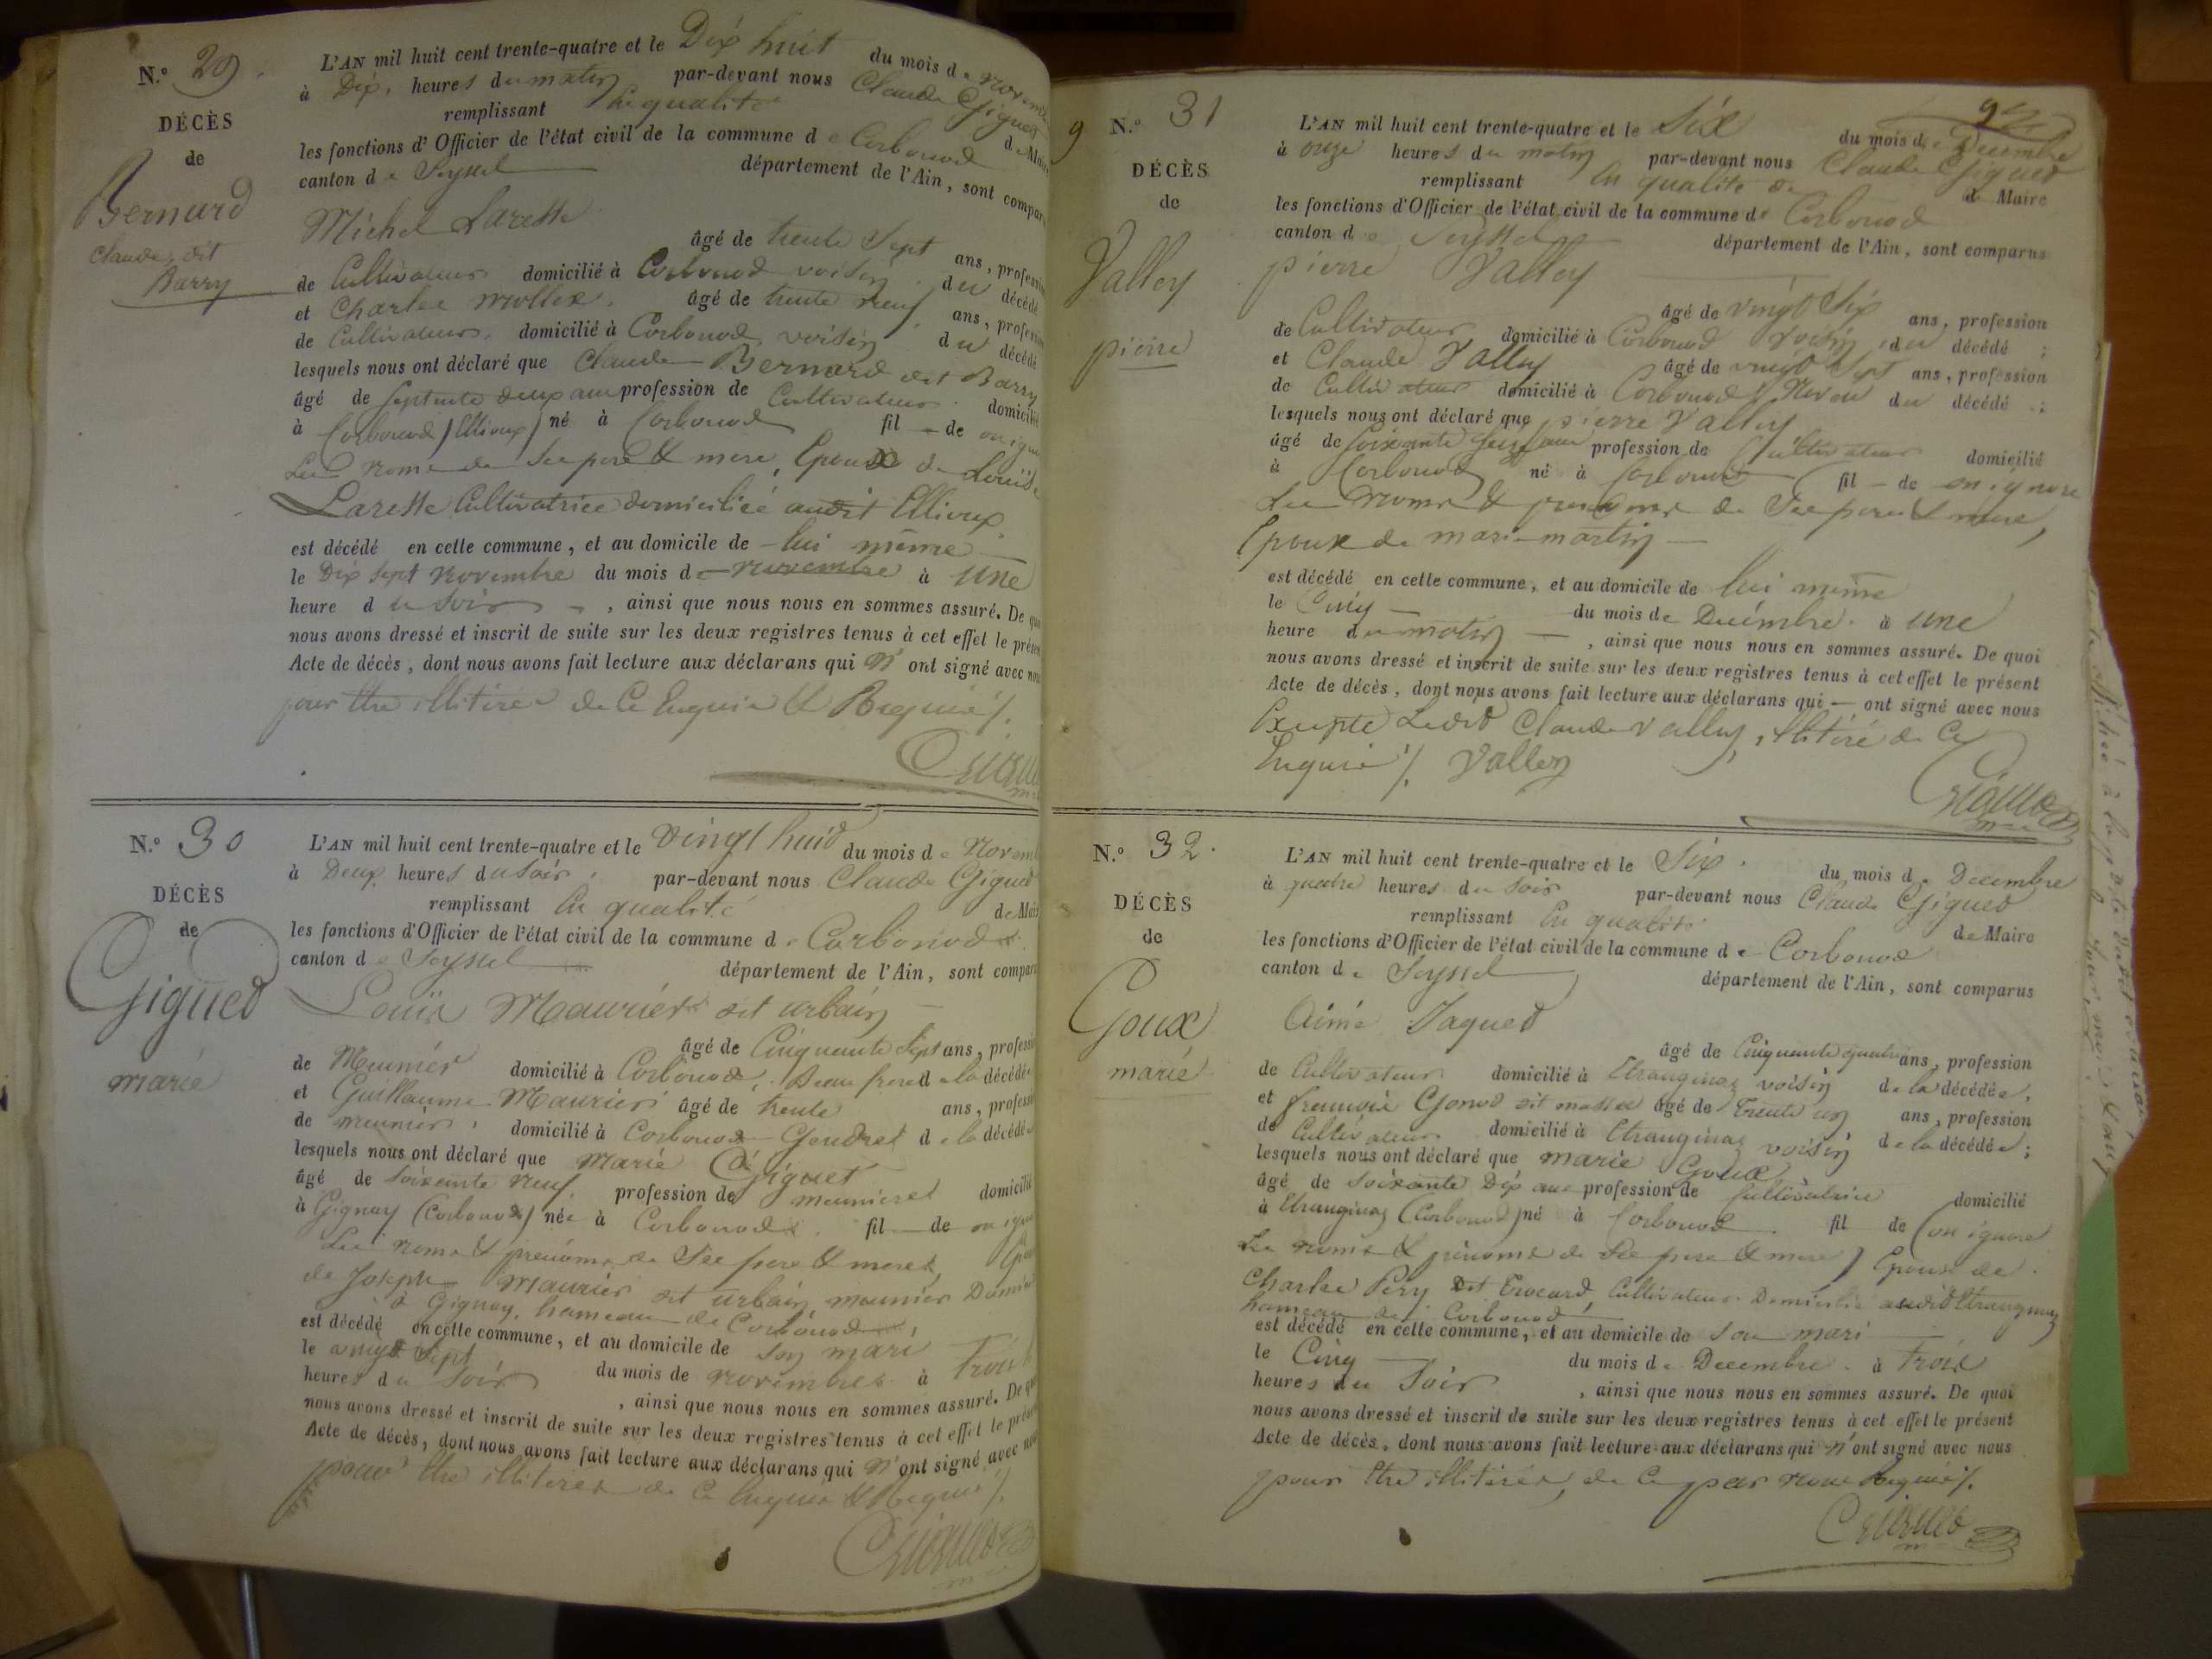 N.° 29.
DÉCÈS
de
Bernard
Claude, dit
Barry
L'AN mil huit cent trente-quatre et le Dix huit du mois de Novembre
à Dix heures du matin par-devant nous Claude Giguet
remplissant en qualité de Maire
les fonctions d'Officier de l'état civil de la commune de Corbonod
canton de Seyssel département de l'Ain, sont compar
Michel Larette
âgé de trente Sept ans, profession
de Cultivateur domicilié à Corbonod voisin du décédé
et Charles Mollex. âgé de trente neuf ans, profession
de Cultivateur, domicilié à Corbonod, voisin du décédé
lesquels nous ont déclaré que Claude Bernard dit Barry
âgé de septente deux ans profession de Cultivateur domicilié
à Corbonod (Ellioux) né à Corbonod fil de on ignore
Les noms de See pere & mere, Epoux de Louise
Larette Cultivatrice domiciliée audit Ellioux.
est décédé en cette commune, et au domicile de lui même
le Dix Sept novembre du mois de novembre à une
heure du Soir, ainsi que nous nous en sommes assuré. De quoi
nous avons dressé et inscrit de suite sur les deux registres tenus à cet effet le présent
Acte de décès, dont nous avons fait lecture aux déclarans qui n'ont signé avec nous
pour être illitérés de Ce Enquis & Requis /.
Giguet
N.° 30
DÉCÈS
de
Giguet
marie
L'AN mil huit cent trente-quatre et le vingt huit du mois de Novemb
à Deux heures du Soir, par-devant nous Claude Giguet
remplissant En qualité de Maire
les fonctions d'Officier de l'état civil de la commune de Corbonod
canton de Seyssel département de l'Ain, sont compar
Louis Maurier dit urbain
âgé de Cinquante Sept ans, profession
de Meunier domicilié à Corbonod, Beau frere de la décédée
et Guillaume Maurier âgé de trente ans, profession
de meunier, domicilié à Corbonod Gendre de la décédée
lesquels nous ont déclaré que Marie Giguet
âgé de soixante neuf profession de meuniere domicilié
à Gignay (Corbonod) née à Corbonod fil de on ignore
Les noms & prénoms de See pere & mere,
de Joseph Maurier dit urbain, meunier Domicilié
à Gignay, hameau de Corbonod,
est décédé en cette commune, et au domicile de son mari
le vingt Sept du mois de novembre à Trois
heures du Soir, ainsi que nous nous en sommes assuré. De quoi
nous avons dressé et inscrit de suite sur les deux registres tenus à cet effet le présent
Acte de décès, dont nous avons fait lecture aux déclarans qui n'ont signé avec nous
pour être illiteres de Ce Enquis & Requis /.
Giguet
9
N.° 31
DÉCÈS
de
Valloy
pierre
L'AN mil huit cent trente-quatre et le Six du mois de Decembre
à onze heures du matin par-devant nous Claude Giguet
remplissant En qualité de de Maire
les fonctions d'Officier de l'état civil de la commune de Corbonod
canton de Seyssel département de l'Ain, sont comparus
pierre Valloy
âgé de vingt Six ans, profession
de Cultivateur domicilié à Corbonod voisin du décédé ;
et Claude Valloy âgé de vingt Sept ans, profession
de Cultivateur domicilié à Corbonod Neveu du décédé ;
lesquels nous ont déclaré que pierre Valloy
âgé de soixante ans profession de Cultivateur domicilié
à Corbonod né à Corbonod fil de on ignore
Les Noms & prenoms de See pere & mere,
Epoux de marie martin
est décédé en cette commune, et au domicile de lui même
le Cinq du mois de Decembre à une
heure du matin, ainsi que nous nous en sommes assuré. De quoi
nous avons dressé et inscrit de suite sur les deux registres tenus à cet effet le présent
Acte de décès, dont nous avons fait lecture aux déclarans qui ont signé avec nous
Excepté Ledit Claude Valloy, illitéré de Ce
Enquis /. Valloy
Giguet
N.° 32.
DÉCÈS
de
Goux
marie
L'AN mil huit cent trente-quatre et le Six. du mois de Decembre
à quatre heures du Soir par-devant nous Claude Giguet
remplissant En qualité de Maire
les fonctions d'Officier de l'état civil de la commune de Corbonod
canton de Seyssel département de l'Ain, sont comparus
Aimé Jaquet
âgé de Cinquante quatre ans, profession
de Cultivateur domicilié à Etranginaz voisin de la décédée,
et francois Gonod dit âgé de Trente un ans, profession
de Cultivateur domicilié à Etranginaz voisin de la décédée ;
lesquels nous ont déclaré que marie Goux
âgé de Soixante Dix ans profession de Cultivatrice domicilié
à Etranginaz (Corbonod) né à Corbonod fil de (on ignore
Les noms & prénoms de See pere & mere) Epouse de
Charles Pery Dit Trocard, Cultivateur Domicilié audit Etranginaz
hameau de Corbonod
est décédé en cette commune, et au domicile de son mari
le Cinq du mois de Decembre à Trois
heures du Soir, ainsi que nous nous en sommes assuré. De quoi
nous avons dressé et inscrit de suite sur les deux registres tenus à cet effet le présent
Acte de décès, dont nous avons fait lecture aux déclarans qui n'ont signé avec nous
pour être illitérés, de Ce par nous Requis /.
Giguet